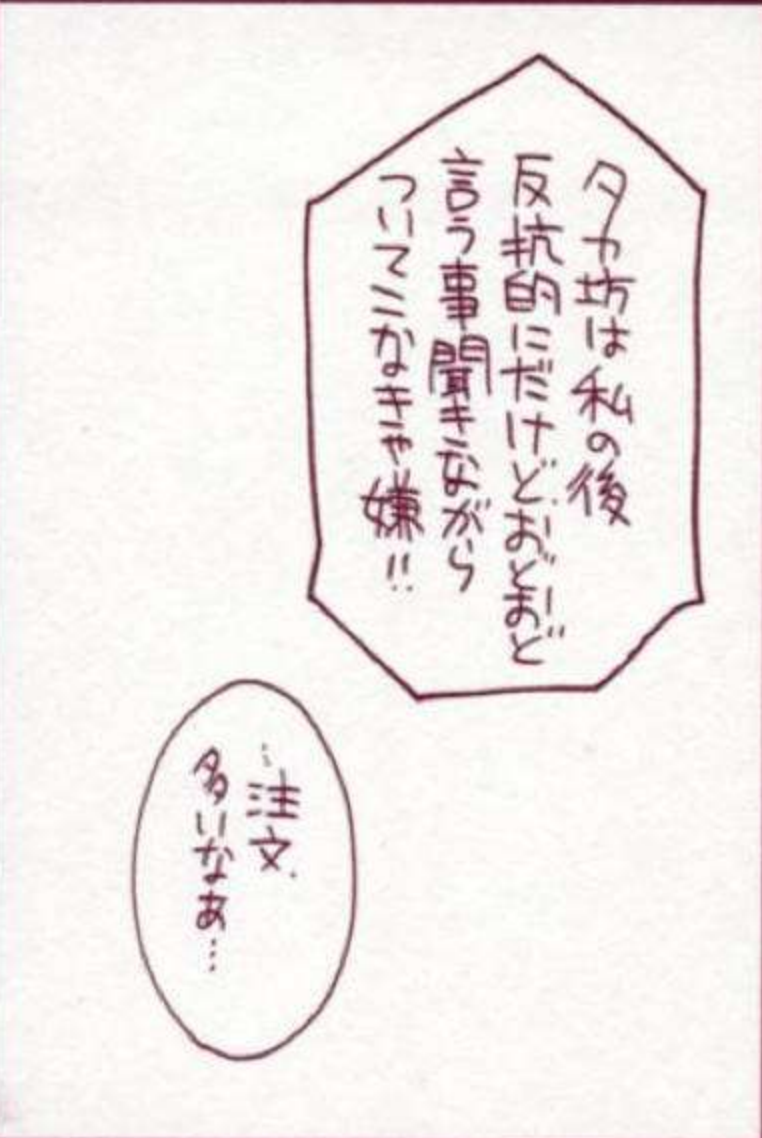 タカ坊は私の後
反抗的にだけどおどおど
言う事聞きながら
ついてこなきゃ嫌!!
…注文
多いなぁ…